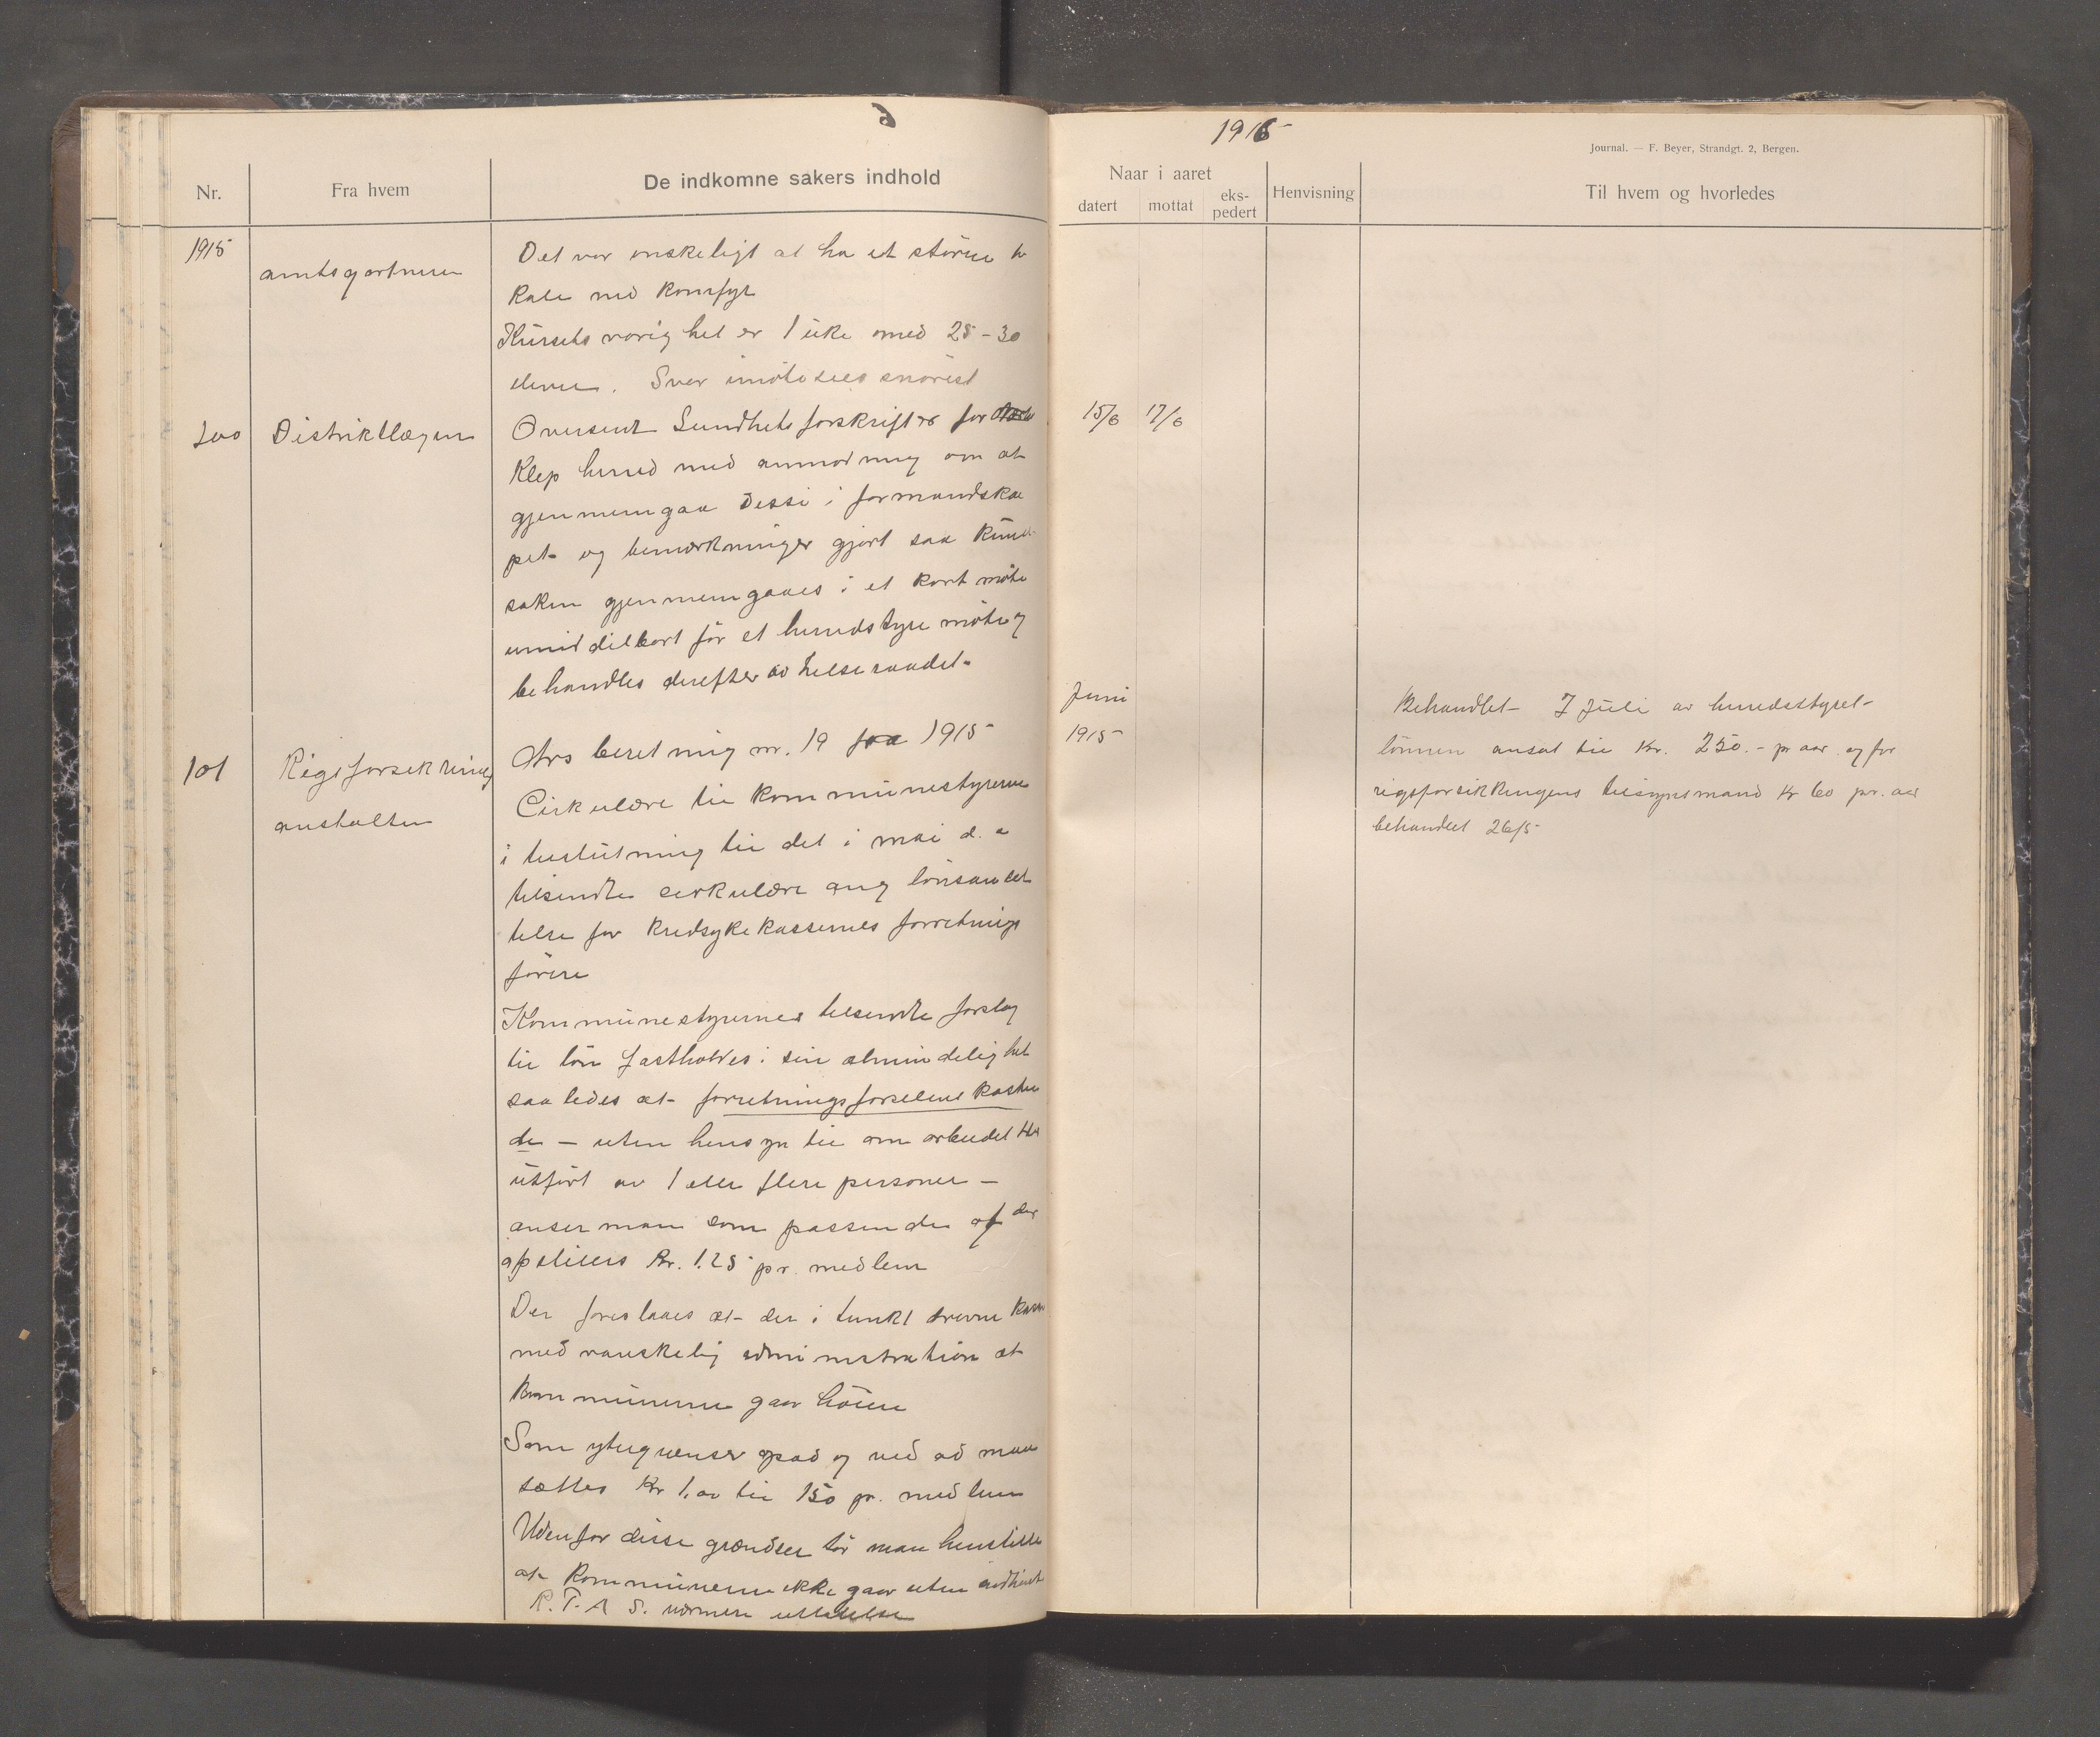 1915
Journal. — F. Beyer, Strandgt. 2, Bergen.
Nr.
Fra hvem
De indkomne sakers indhold
Naar i aaret
datert
mottat
eks-
pedert
Henvisning
Til hvem og hvorledes
1915
amtsgartneren
Det var ønskeligt at ha et större lo
kale med komfyr
Kursets varighet er 1 uke med 25-30
elever. Svar imøtesees snarest
100
Distriktlægen
Oversent Sundhetsforskrifter for
Klep herred med anmodning om at
gjennemgaa disse i formandska
pet og bemærkninger gjort saa kunde
saken gjennemgaaes i et kort møte
umiddelbart før et herredstyre møte og
behandles derefter av helseraadet.
15/6
17/6
101
Rigsforsikrings
anstalten
Aars beretning nr. 19 1915
Cirkulære til kommunestyrerne
i tilslutning til det i mai d.a
tilsendte cirkulære ang lønsansæt
telse for kredsykekassernes forretnings
förere
Kommunestyrernes tilsendte forslag
til løn fastholdes i sin almindelighet
saaledes at forretningsførselens kosten
de — uten hensyn til om arbeidet
utført av 1 eller flere personer —
anser man som passende at der
opstilles Kr. 1.25 pr. medlem
Der foreslaaes at der i tungt drevne kasser
med vanskelig administration at
kommunerne gaar höiere
Som ytergrænser opad og nedad maa
sættes Kr 1,00 til 150 pr. medlem
Uden for disse grændser tör man henstille
at kommunerne ikke gaar uten indhent
R.T.A S. nærmere uttalelse
Juni
1915
Behandlet 7 Juli av herredsstyret
lönnen ansat til Kr. 250.- pr aar. og for
rigsforsikkringens tilsynsmand Kr 60 pr. aar
behandlet 26/5